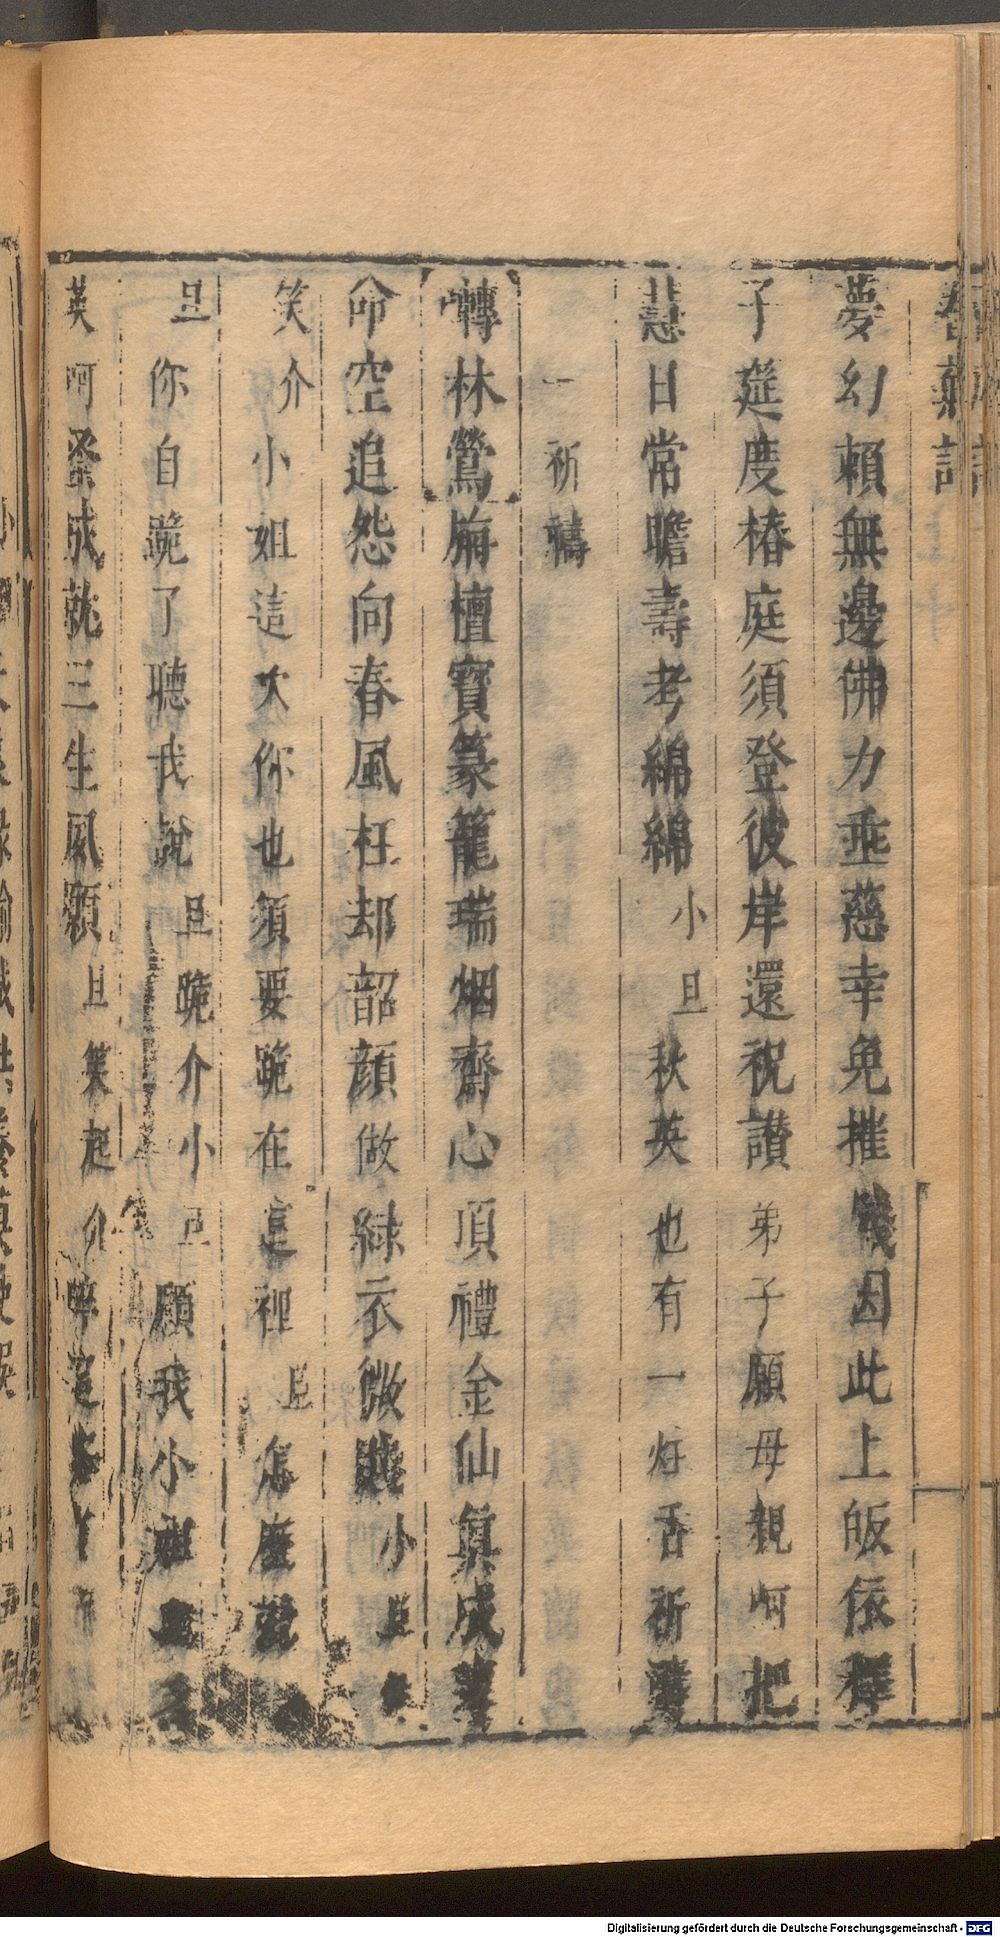 夢幻賴無邊佛力垂慈幸免摧殘因此上皈依釋
子筵度椿庭須登彼岸還祝讚弟子願母親呵把
慧日常瞻壽考綿綿小旦秋英也有一炷舌祈禱
一祈禱
囀林鶯旃檀寶篆籠瑞烟齋心頂禮金仙眞成
命空追怨向春風枉却韶顔做緑衣微賤小旦
笑介小姐這次你也須要跪在這裡旦怎麽說
旦你自跪了聽我說旦跪介小旦願我小姐
英呵祭成就三生夙願旦笑起介啐這丫
Digitalisierung gefördert durch die Deutsche Forschungsgemeinschaft - DFG